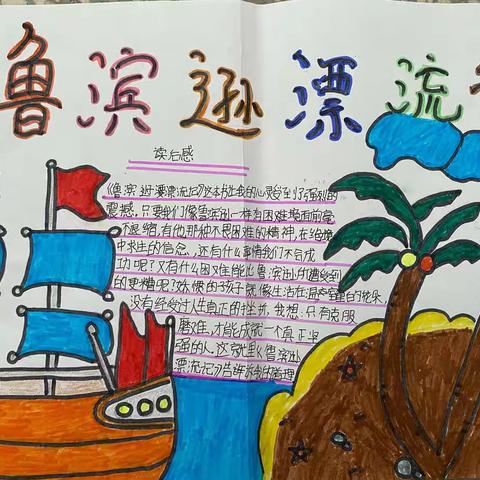 鲁滨逊漂流
读后感
《鲁滨逊漂流记》这本书让我的心灵受到了强烈的
震撼,只要我们像鲁滨逊一样有困难墙面前毫
不退缩,有他那种不畏困难的精神,在绝境
中求生的信念,还有什么事情我们不会成
功呢?又有什么困难能比鲁滨逊所遭受到
的更糟呢?娇惯的孩子就像生活在温室里的花朵,
没有经受过人生真正的挫折,我想,只有克服
磨难,才能成就一个真正坚
强的人,这就是《鲁滨逊
漂流记》告诉我的道理